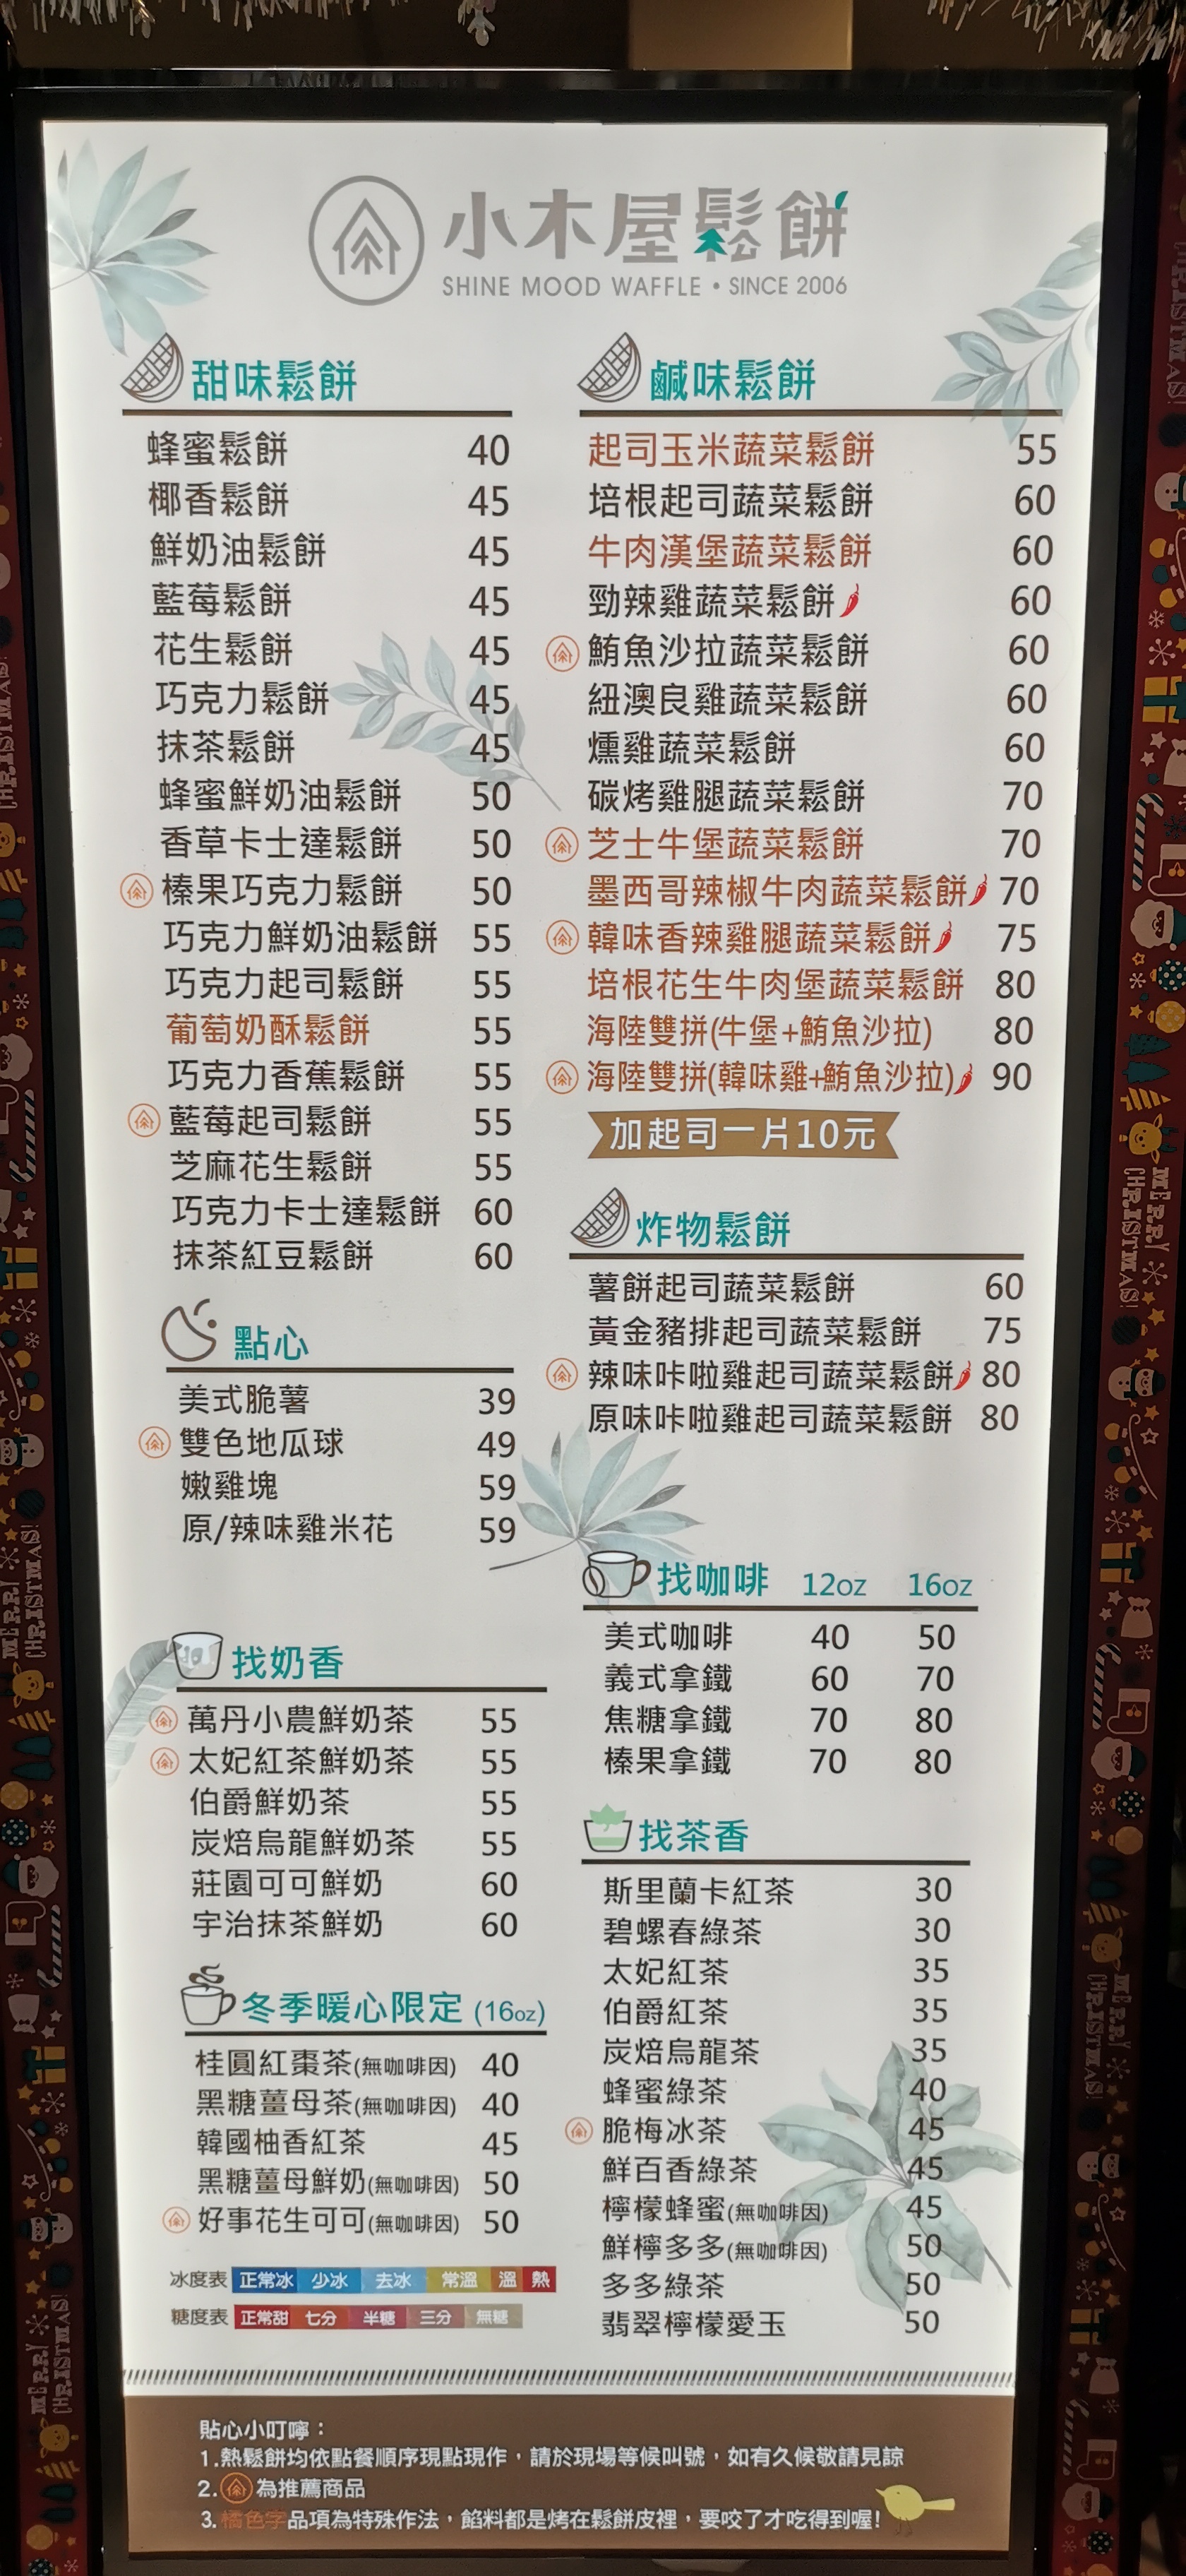 小木屋鬆餅
SHINE MOOD WAFFLE • SINCE 2006
甜味鬆餅
蜂蜜鬆餅 40
椰香鬆餅 45
鮮奶油鬆餅 45
藍莓鬆餅 45
花生鬆餅 45
巧克力鬆餅 45
抹茶鬆餅 45
蜂蜜鮮奶油鬆餅 50
香草卡士達鬆餅 50
榛果巧克力鬆餅 50
巧克力鮮奶油鬆餅 55
巧克力起司鬆餅 55
葡萄奶酥鬆餅 55
巧克力香蕉鬆餅 55
藍莓起司鬆餅 55
芝麻花生鬆餅 55
巧克力卡士達鬆餅 60
抹茶紅豆鬆餅 60
點心
美式脆薯 39
雙色地瓜球 49
嫩雞塊 59
原/辣味雞米花 59
找奶香
萬丹小農鮮奶茶 55
太妃紅茶鮮奶茶 55
伯爵鮮奶茶 55
炭焙烏龍鮮奶茶 55
莊園可可鮮奶 60
宇治抹茶鮮奶 60
冬季暖心限定 (16oz)
桂圓紅棗茶(無咖啡因) 40
黑糖薑母茶(無咖啡因) 40
韓國柚香紅茶 45
黑糖薑母鮮奶(無咖啡因) 50
好事花生可可(無咖啡因) 50
冰度表 正常冰 少冰 去冰 常溫 溫 熱
糖度表 正常甜 七分 半糖 三分 無糖
鹹味鬆餅
起司玉米蔬菜鬆餅 55
培根起司蔬菜鬆餅 60
牛肉漢堡蔬菜鬆餅 60
勁辣雞蔬菜鬆餅 60
鮪魚沙拉蔬菜鬆餅 60
紐澳良雞蔬菜鬆餅 60
燻雞蔬菜鬆餅 60
碳烤雞腿蔬菜鬆餅 70
芝士牛堡蔬菜鬆餅 70
墨西哥辣椒牛肉蔬菜鬆餅 70
韓味香辣雞腿蔬菜鬆餅 75
培根花生牛肉堡蔬菜鬆餅 80
海陸雙拼(牛堡+鮪魚沙拉) 80
海陸雙拼(韓味雞+鮪魚沙拉) 90
加起司一片10元
炸物鬆餅
薯餅起司蔬菜鬆餅 60
黃金豬排起司蔬菜鬆餅 75
辣味咔啦雞起司蔬菜鬆餅 80
原味咔啦雞起司蔬菜鬆餅 80
找咖啡 12oz 16oz
美式咖啡 40 50
義式拿鐵 60 70
焦糖拿鐵 70 80
榛果拿鐵 70 80
找茶香
斯里蘭卡紅茶 30
碧螺春綠茶 30
太妃紅茶 35
伯爵紅茶 35
炭焙烏龍茶 35
蜂蜜綠茶 40
脆梅冰茶 45
鮮百香綠茶 45
檸檬蜂蜜(無咖啡因) 45
鮮檸多多(無咖啡因) 50
多多綠茶 50
翡翠檸檬愛玉 50
貼心小叮嚀：
1.熱鬆餅均依點餐順序現點現作，請於現場等候叫號，如有久候敬請見諒
2. 為推薦商品
3.橘色字品項為特殊作法，餡料都是烤在鬆餅皮裡，要咬了才吃得到喔!
MERRY CHRISTMAS!
MERRY CHRISTMAS!
MERRY CHRISTMAS!
MERRY CHRISTMAS!